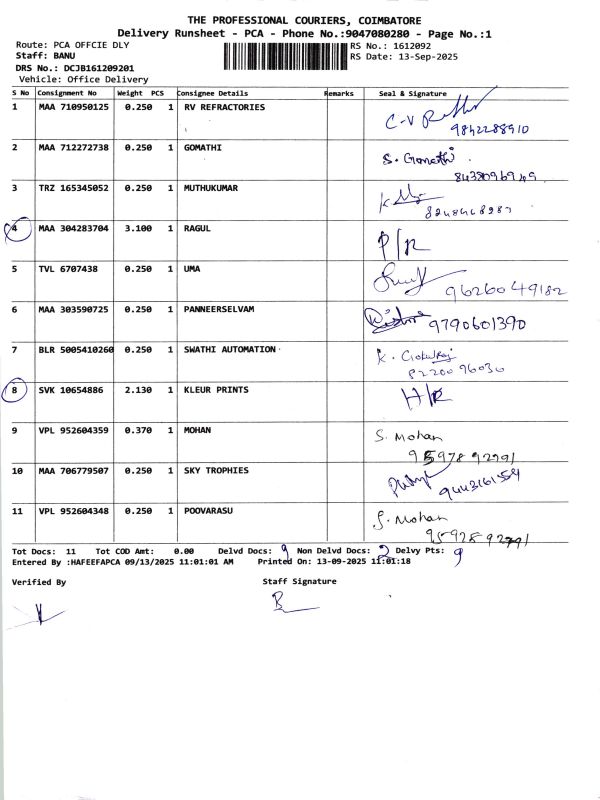 THE PROFESSIONAL COURIERS, COIMBATORE
Delivery Runsheet - PCA - Phone No.:9047080280 - Page No.:1
Route: PCA OFFCIE DLY RS No.: 1612092
Staff: BANU RS Date: 13-Sep-2025
DRS No.: DCJB161209201
Vehicle: Office Delivery
S No Consignment No Weight PCS Consignee Details Remarks Seal & Signature
1 MAA 710950125 0.250 1 RV REFRACTORIES C-V
9842288910
2 MAA 712272738 0.250 1 GOMATHI S. Gomathi
3 TRZ 165345052 0.250 1 MUTHUKUMAR
4 MAA 304283704 3.100 1 RAGUL P/R
5 TVL 6707438 0.250 1 UMA
9626049182
6 MAA 303590725 0.250 1 PANNEERSELVAM 9790601390
7 BLR 5005410260 0.250 1 SWATHI AUTOMATION K. Gokulraj
8220096030
8 SVK 10654886 2.130 1 KLEUR PRINTS H/R
9 VPL 952604359 0.370 1 MOHAN S. Mohan
9597892791
10 MAA 706779507 0.250 1 SKY TROPHIES
9443161559
11 VPL 952604348 0.250 1 POOVARASU S. Mohan
Tot Docs: 11 Tot COD Amt: 0.00 Delvd Docs: 9 Non Delvd Docs: 2 Delvy Pts: 9
Entered By :HAFEEFAPCA 09/13/2025 11:01:01 AM Printed On: 13-09-2025 11:01:18
Verified By Staff Signature
B